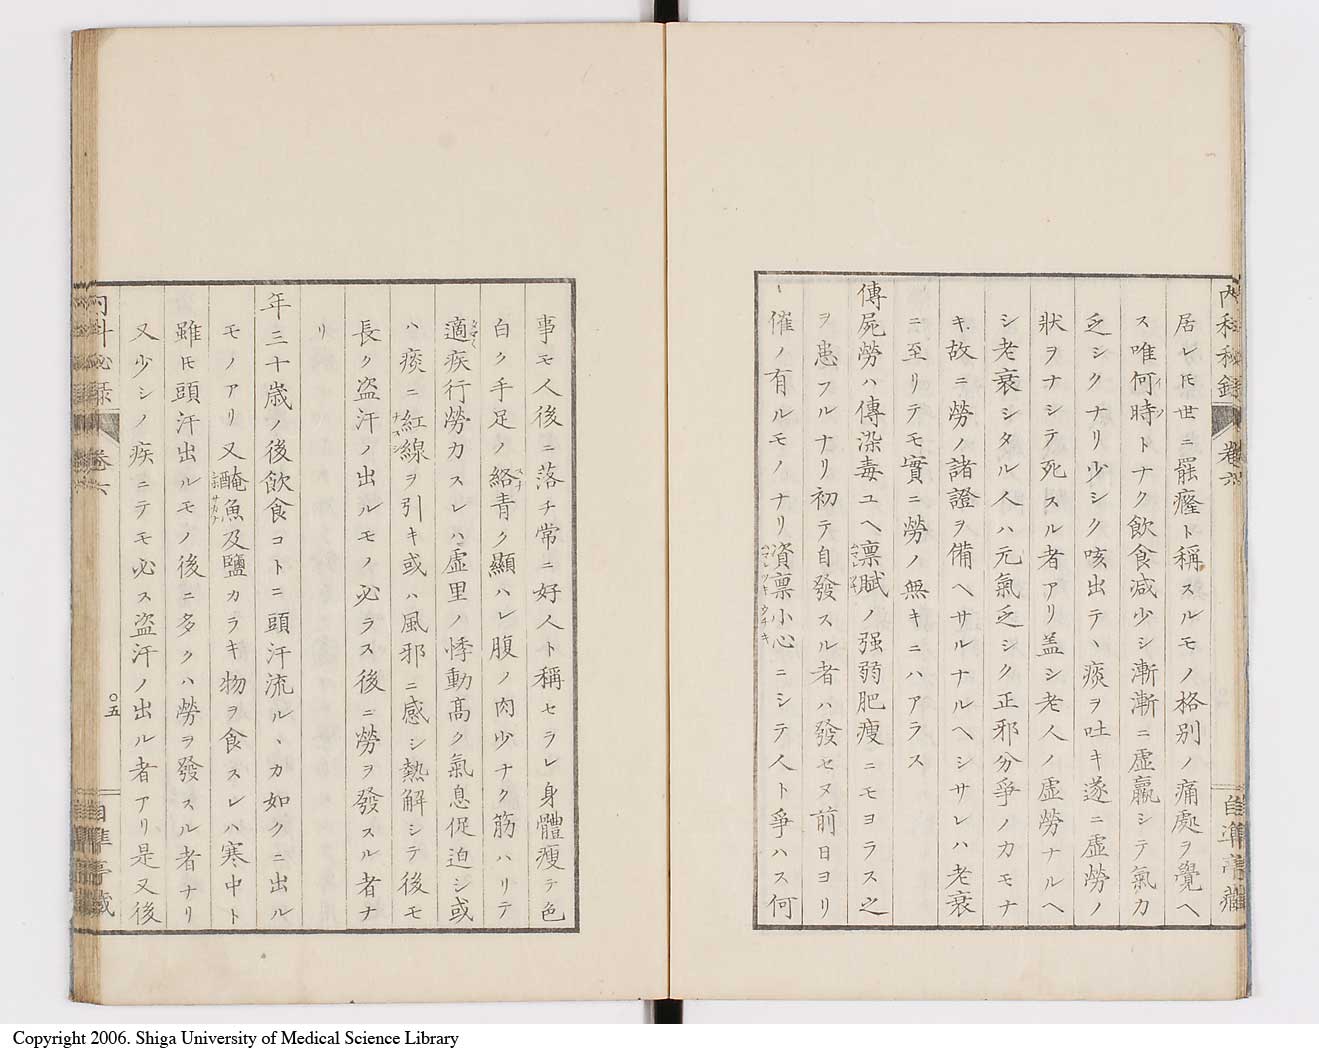 内科秘録 卷六 自準亭藏
居レ𪜈世ニ罷癃ト稱スルモノ格別ノ痛處ヲ覺ヘ
ス唯何時トナク飲食減少シ漸漸ニ虛羸シテ氣力
乏シクナリ少シク咳出テヽ痰ヲ吐キ遂ニ虛勞ノ
狀ヲナシテ死スル者アリ盖シ老人ノ虛勞ナルヘ
シ老衰シタル人ハ元氣乏シク正邪分爭ノカモナ
キ故ニ勞ノ諸證ヲ備ヘサルナルヘシサレハ老衰
ニ至リテモ實ニ勞ノ無キニハアラス
傳屍勞ハ傳染毒ユヘ禀賦ノ强弱肥瘦ニモヨラス之
ヲ患フルナリ初テ自發スル者ハ發セヌ前日ヨリ
催ノ有ルモノナリ資禀小心ニシテ人ト爭ハス何
事モ人後ニ落チ常ニ好人ト稱セラレ身體瘦テ色
白ク手足ノ絡青ク顯ハレ腹ノ肉少ナク筋ハリテ
適疾行勞力スレハ虛里ノ悸動髙ク氣息促迫シ或
ハ痰ニ紅線ヲ引キ或ハ風邪ニ感シ熱解シテ後モ
長ク盗汗ノ出ルモノ必ラス後ニ勞ヲ發スル者ナ
リ
年三十歳ノ後飲食コトニ頭汗流ルヽカ如クニ出ル
モノアリ又醃魚及鹽カラキ物ヲ食スレハ寒中ト
雖𪜈頭汗出ルモノ後ニ多クハ勞ヲ發スル者ナリ
又少シノ疾ニテモ必ス盗汗ノ出ル者アリ是又後
内科秘録 卷六 〇五 自準亭藏
Copyright 2006. Shiga University of Medical Science Library